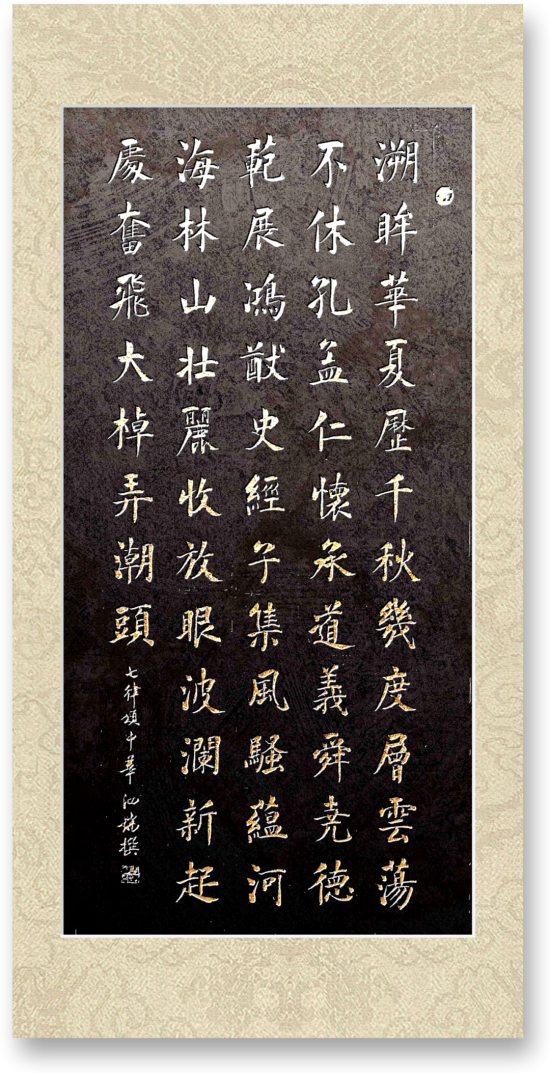 溯眸華夏歷千秋幾度層雲蕩
不休孔孟仁懷承道義舜尭德
範展鴻猷史經子集風騷蘊河
海林山壯麗收放眼波瀾新起
處奮飛大棹弄潮頭
七律頌中華 撰